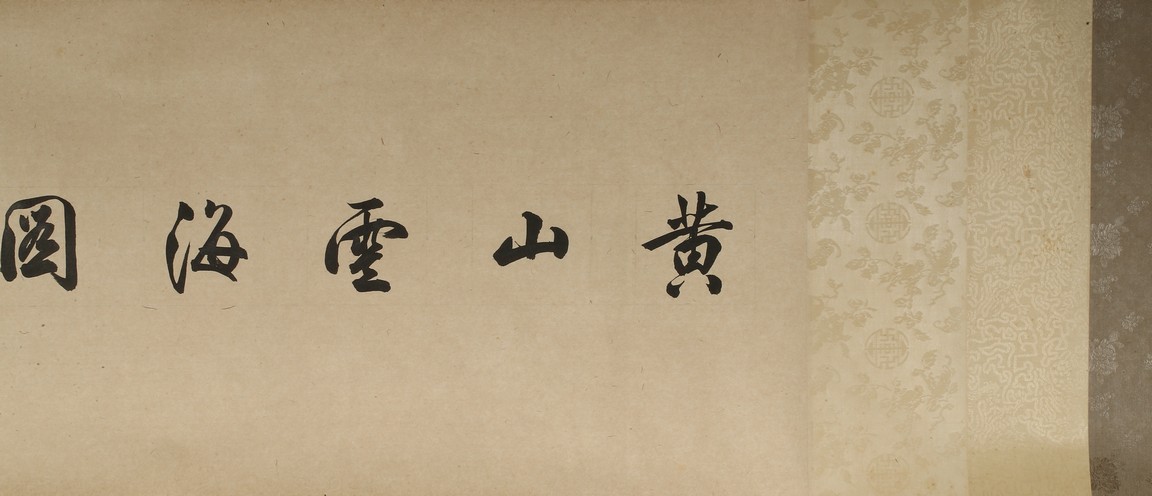 黄山雲海圖